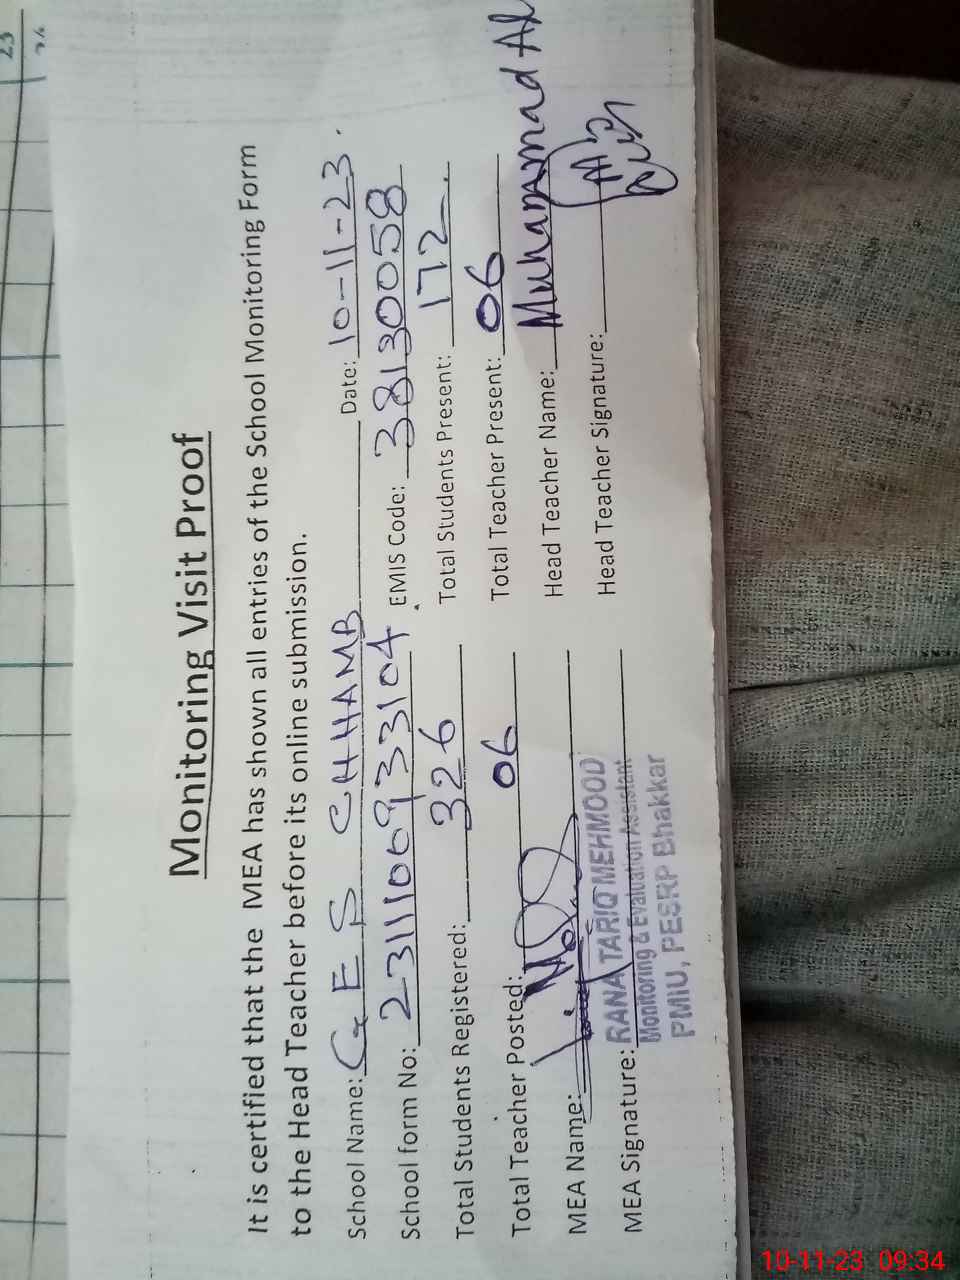 23
Monitoring Visit Proof
It is certified that the MEA has shown all entries of the School Monitoring Form
to the Head Teacher before its online submission.
School Name: GES CHHAMB Date: 10-11-23.
School form No: 231110693 3104 EMIS Code: 38130058
Total Students Registered: 326 Total Students Present: 172
Total Teacher Posted: 06 Total Teacher Present: 06
MEA Name: Head Teacher Name: Muhammad
MEA Signature: Head Teacher Signature:
RANA TARIQ MEHMOOD
Monitoring & Evaluation Assistant
PMIU, PESRP Bhakkar
10-11-23 09:34